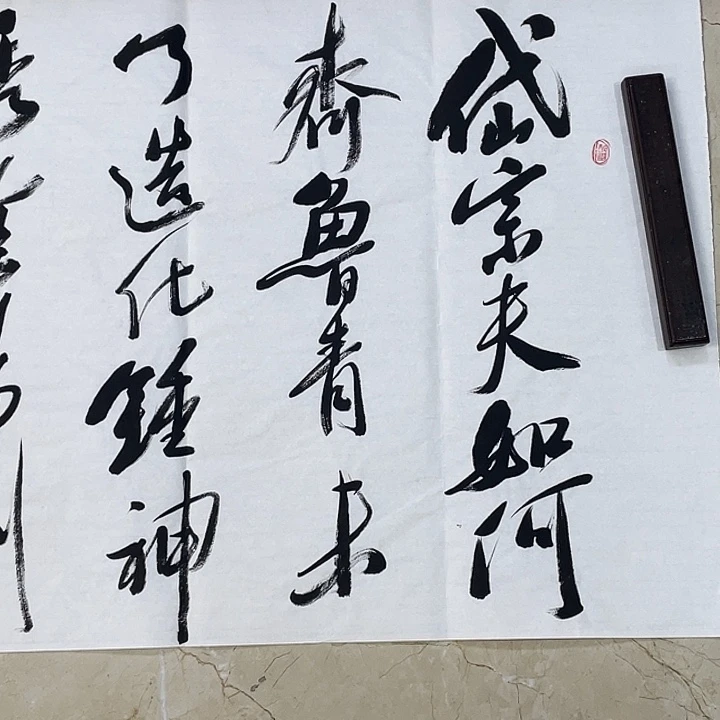 岱宗夫如何
齊魯青未
了造化鍾神